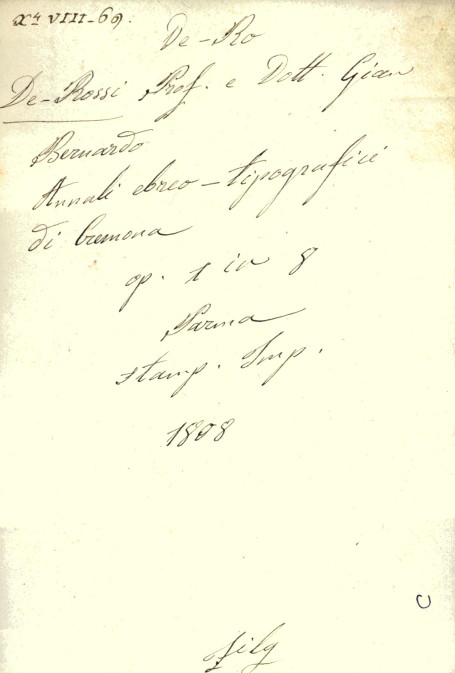 X^a VIII-69.
De-Ro
De-Rossi Prof. e Dott. Gian
Bernardo
Annali ebreo-tipografici
di Cremona
op. 1 in 8
Parma
stamp. Imp.
1808
C